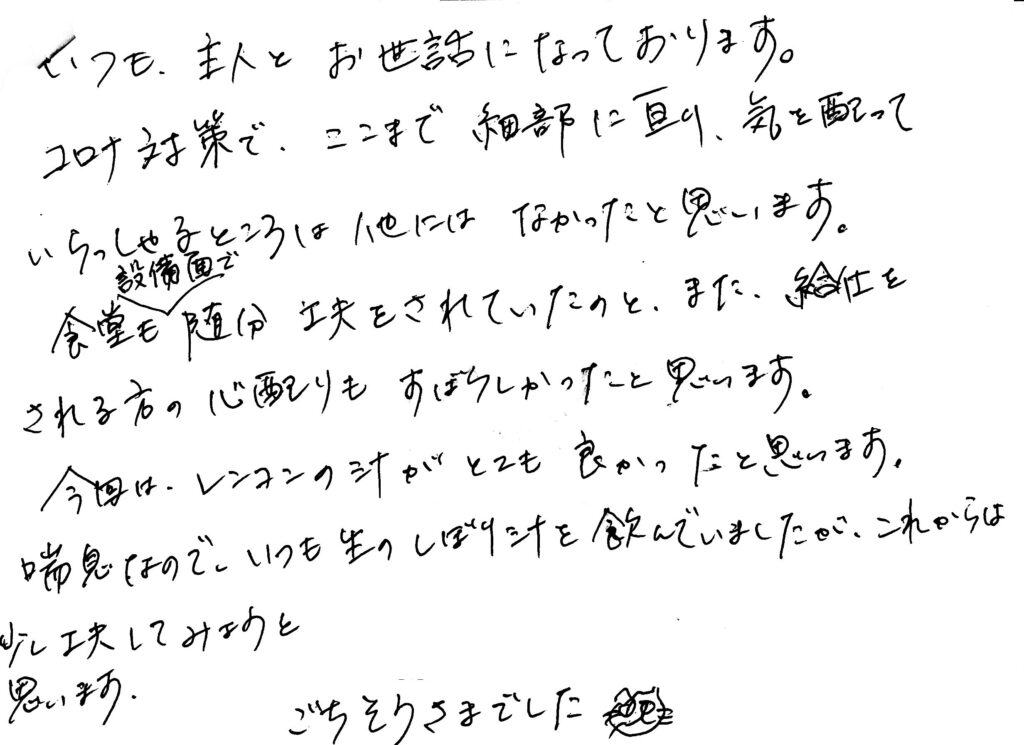 いつも、主人と お世話になっております。
コロナ対策で、ここまで 細部に亘り、気を配って
いらっしゃるところは他には なかったと思います。
設備面で
食堂も 随分 工夫をされていたのと、また、給仕を
される方の心配りも すばらしかったと思います。
今回は、レンコンの汁がとても 良かったと思います。
喘息なので、いつも生のしぼり汁を飲んでいましたが、これからは
少し工夫してみようと
思います。
ごちそうさまでした